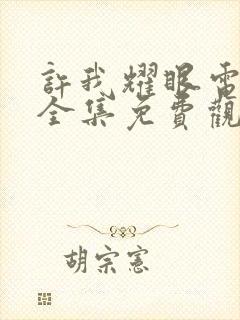 許我耀眼電
全集免費觀
胡宗憲